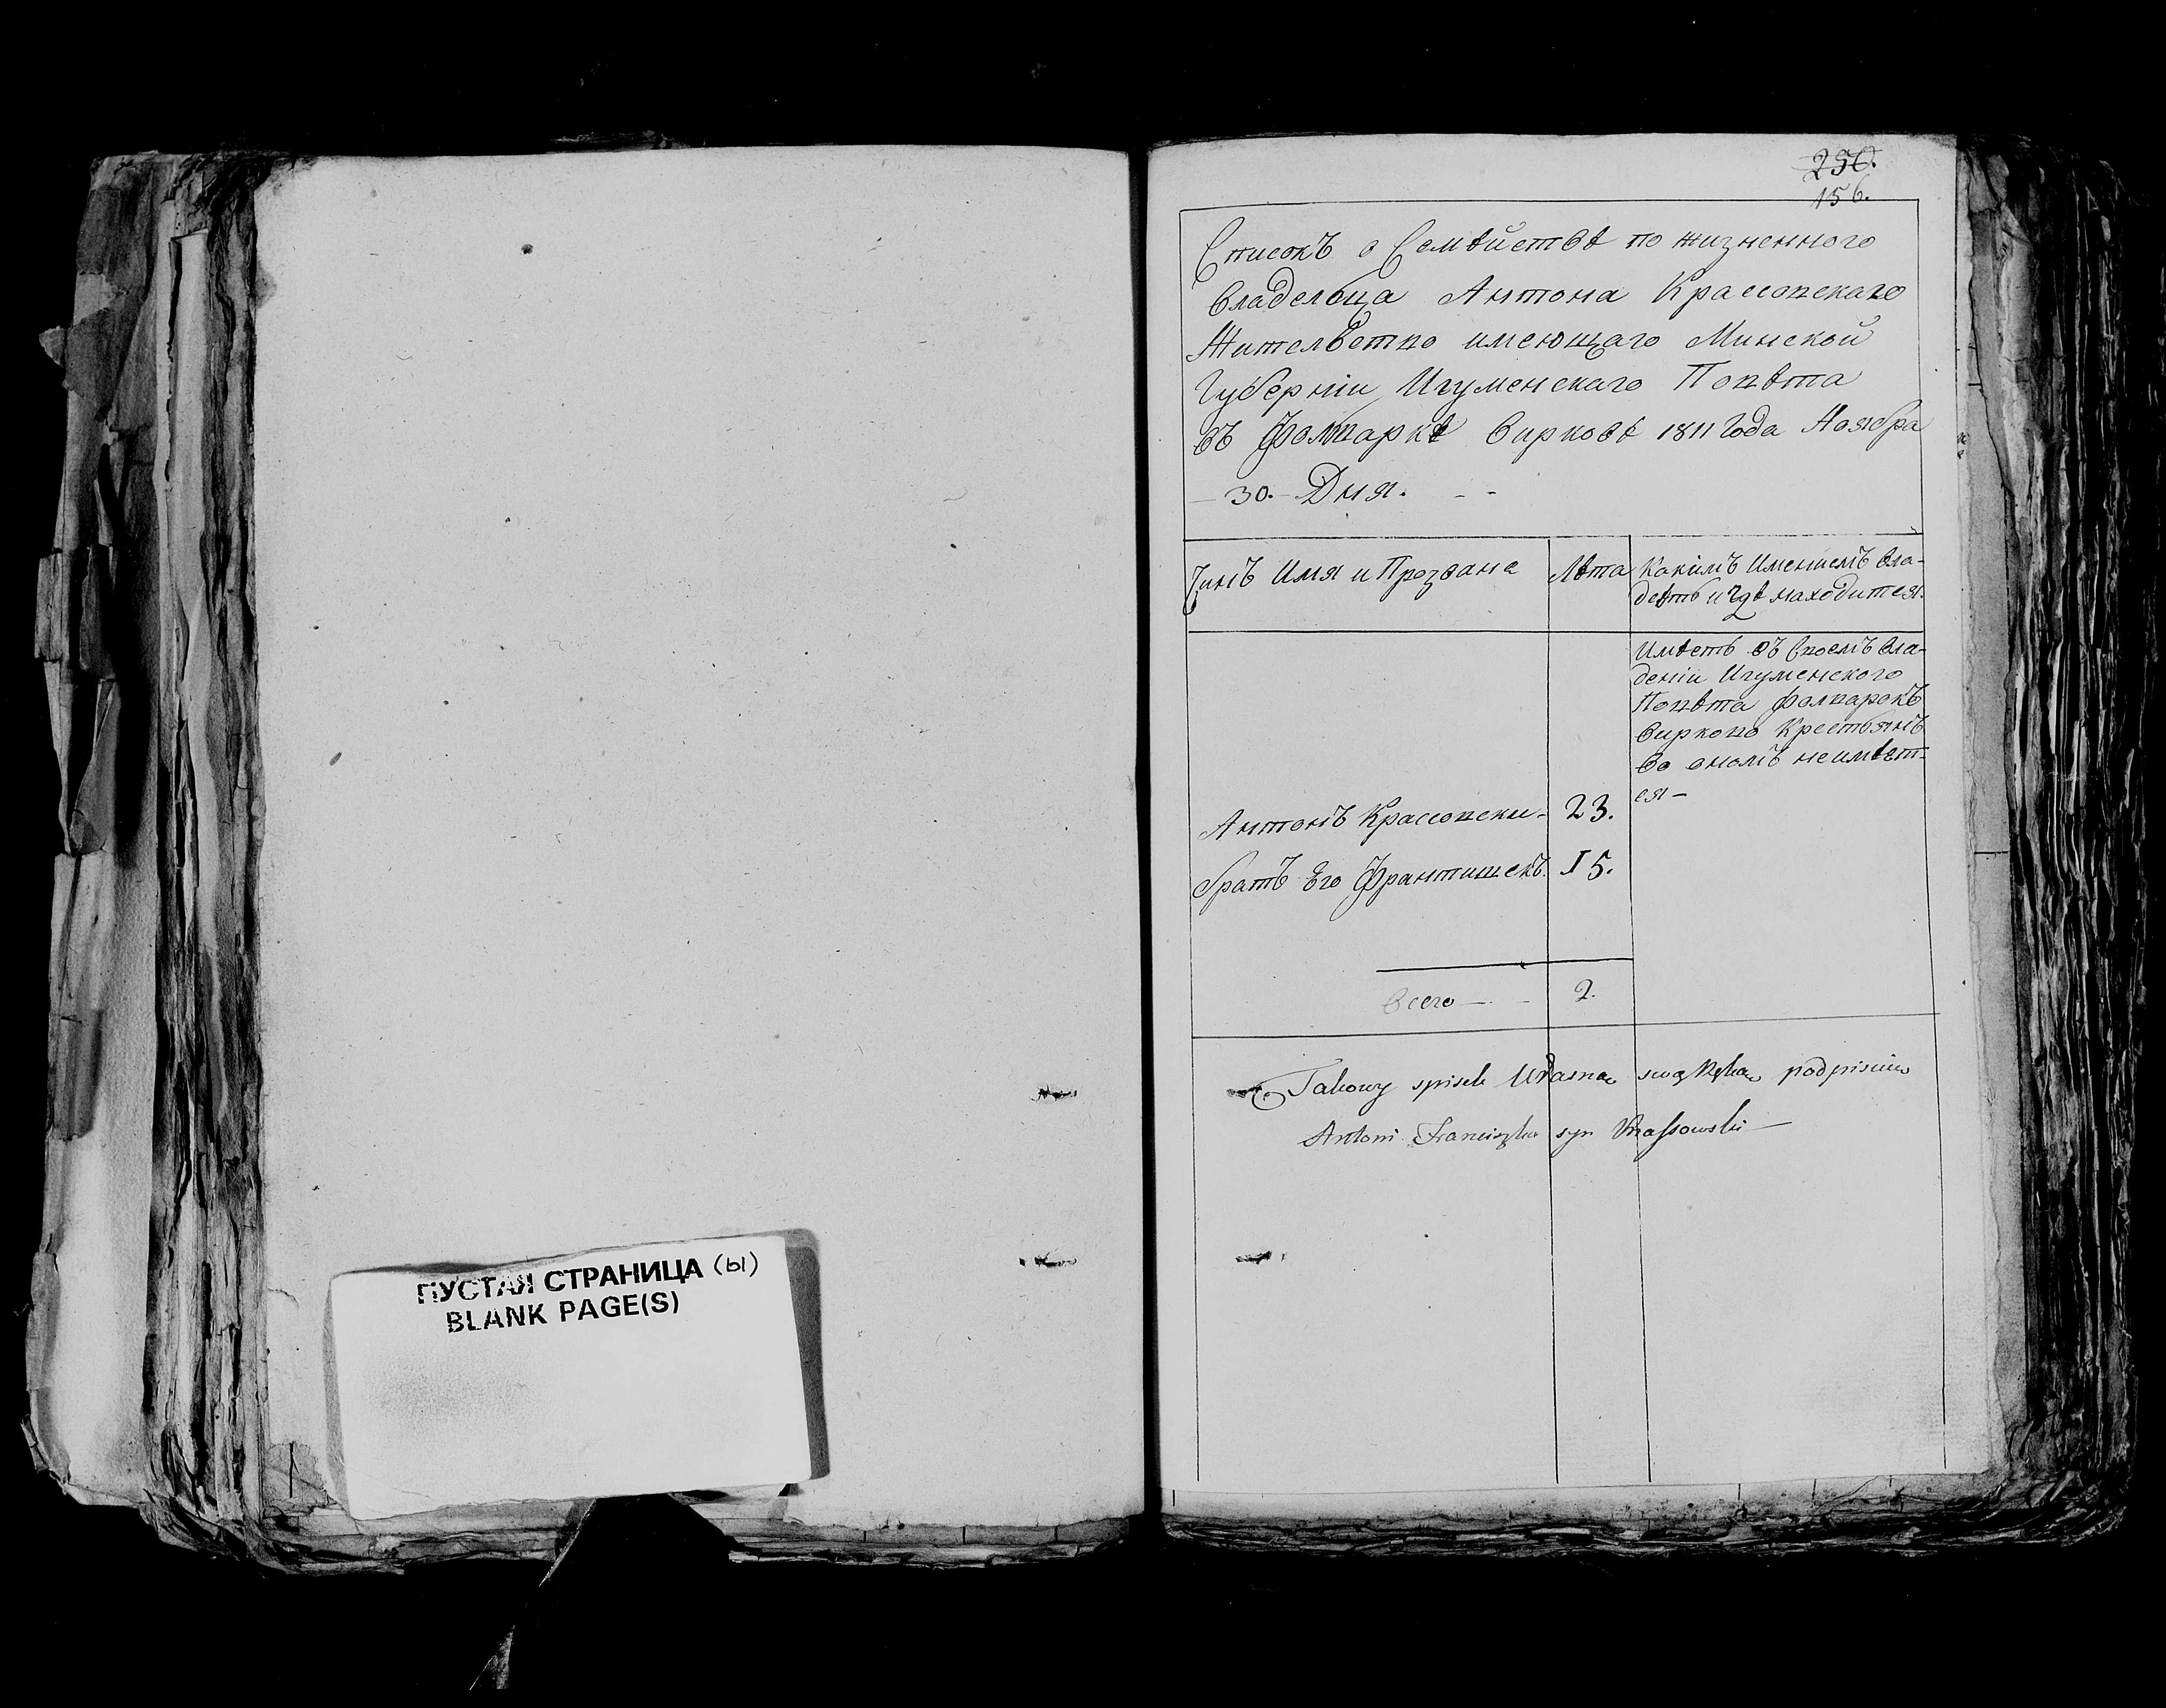 ПУСТАЯ СТРАНИЦА (ы)
BLANK PAGE(S)
250.
156.
Списокъ о Семѣйствѣ по жизненного
владельца Антона Крассовскаго
Жительство имеющаго Минской
Губерніи Игуменскаго Повѣта
въ Фольваркѣ Вирковѣ 1811 Года Ноября
30. Дня.
Чинъ Имя и Прозване
Лѣта
Какимъ Имениемъ вла-
деѣтъ и гдѣ находится.
Имѣетъ въ своемъ вла-
деніи Игуменского
Повѣта Фолварокъ
Вирково Крестьянъ
во ономъ неимѣет-
ся —
Антонъ Крассовски - 23.
Братъ Его Франтишекъ. 15.
Всего — 2.
Takowy spisek Własną swą Ręką podpisuię
Antoni Franciszka syn Krassowski —